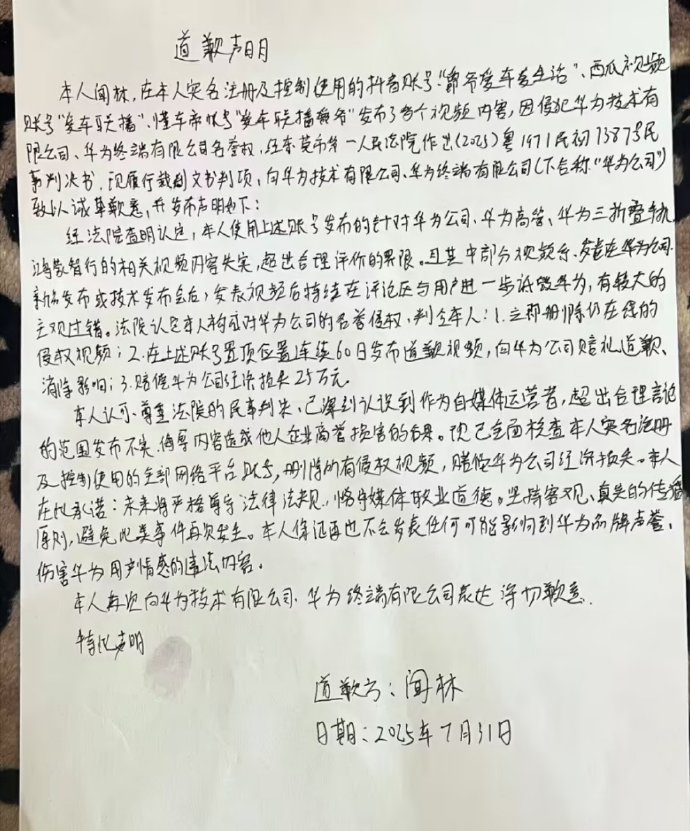 道歉声明
本人闻林,在本人实名注册及控制使用的抖音账号“爱车爱生活”、西瓜视频
账号“爱车联播”、懂车帝帐号“爱车联播”发布了多个视频内容,因侵犯华为技术有
限公司、华为终端有限公司名誉权,经东莞市第一人民法院作出(2025)粤1971民初13873号民
事判决书,现履行裁判文书判项,向华为技术有限公司、华为终端有限公司(下合称“华为公司”)
致以诚挚歉意,并发布声明如下:
经法院查明认定,本人使用上述账号发布的针对华为公司、华为高管、华为三折叠手机
鸿蒙智行的相关视频内容失实,超出合理评价的界限。且其中部分视频系在华为公司
新品发布或技术发布会后,发表视频后持续在评论区与用户进一步诋毁华为,有较大的
主观过错。法院认定本人构成对华为公司的名誉侵权,判令本人:1.立即删除仍在线的
侵权视频;2.在上述账号置顶位置连续60日发布道歉视频,向华为公司赔礼道歉、
消除影响;3.赔偿华为公司经济损失25万元。
本人认可、尊重法院的民事判决,已深刻认识到作为自媒体运营者,超出合理言论
的范围发布不实、侮辱内容造成他人企业商誉损害的后果。现已全面核查本人实名注册
及控制使用的全部网络平台账号,删除所有侵权视频,赔偿华为公司经济损失。本人
在此承诺:未来将严格遵守法律法规,恪守媒体职业道德。坚持客观、真实的传播
原则,避免此类事件再次发生。本人保证再也不会发表任何可能影响到华为品牌声誉、
伤害华为用户情感的违法内容。
本人再次向华为技术有限公司、华为终端有限公司表达深切歉意.
特此声明
道歉方:闻林
日期:2025年7月31日